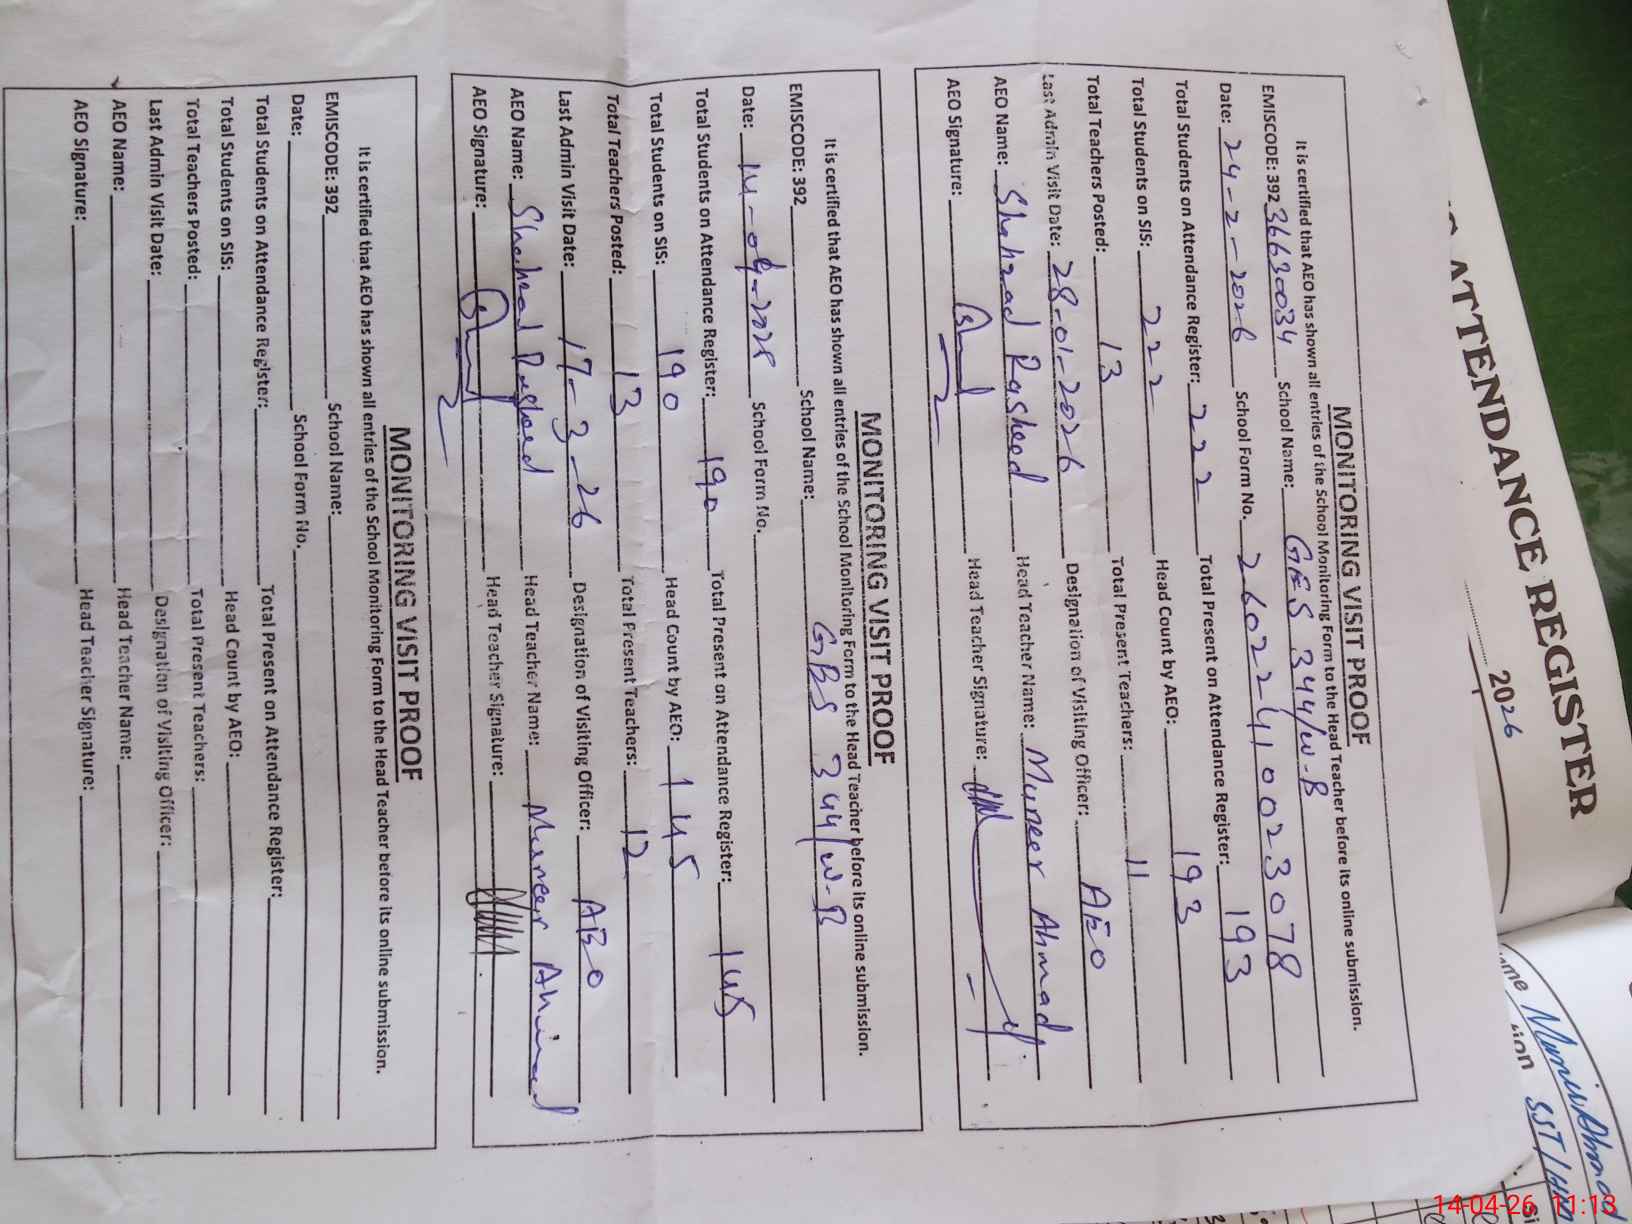 ATTENDANCE REGISTER
2026
MONITORING VISIT PROOF
It is certified that AEO has shown all entries of the School Monitoring Form to the Head Teacher before its online submission.
EMISCODE: 392 36630034 School Name: GES 344/W-B
Date: 24-2-2026 School Form No. 26022410023078
Total Students on Attendance Register: 222 Total Present on Attendance Register: 193
Total Students on SIS: 222 Head Count by AEO: 193
Total Teachers Posted: 13 Total Present Teachers: 11
Last Admin Visit Date: 28-01-2026 Designation of Visiting Officer: AEO
AEO Name: Shahzad Rasheed Head Teacher Name: Muneer Ahmad
AEO Signature: Head Teacher Signature:
MONITORING VISIT PROOF
It is certified that AEO has shown all entries of the School Monitoring Form to the Head Teacher before its online submission.
EMISCODE: 392 School Name: GBS 344/W-B
Date: 14-04-2026 School Form No.
Total Students on Attendance Register: 190 Total Present on Attendance Register: 145
Total Students on SIS: 190 Head Count by AEO: 145
Total Teachers Posted: 13 Total Present Teachers: 12
Last Admin Visit Date: 17-3-26 Designation of Visiting Officer: AEO
AEO Name: Shahzad Rasheed Head Teacher Name: Muneer Ahmad
AEO Signature: Head Teacher Signature:
MONITORING VISIT PROOF
It is certified that AEO has shown all entries of the School Monitoring Form to the Head Teacher before its online submission.
EMISCODE: 392 School Name:
Date: School Form No.
Total Students on Attendance Register: Total Present on Attendance Register:
Total Students on SIS: Head Count by AEO:
Total Teachers Posted: Total Present Teachers:
Last Admin Visit Date: Designation of Visiting Officer:
AEO Name: Head Teacher Name:
AEO Signature: Head Teacher Signature:
SST/
14-04-26 11:13